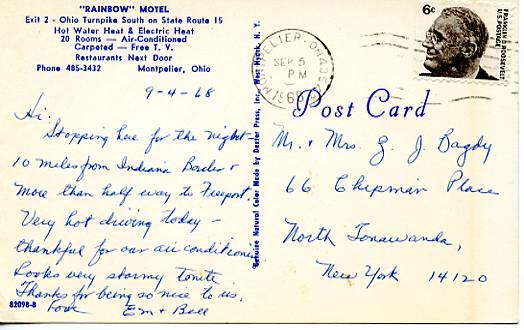 "RAINBOW" MOTEL
Exit 2 - Ohio Turnpike South on State Route 15
Hot Water Heat & Electric Heat
20 Rooms — Air-Conditioned
Carpeted — Free T. V.
Restaurants Next Door
Phone 485-3432 Montpelier, Ohio
9-4-68
Hi.
Stopping here for the night -
10 miles from Indiana Border &
more than half way to Freeport.
Very hot driving today -
thankful for our air conditioning
Looks very stormy tonite
Thanks for being so nice to us.
Love Em & Bill
82098-B
Genuine Natural Color Made by Dexter Press, Inc., West Nyack, N. Y.
SEP 5
PM
1968
6c
FRANKLIN D. ROOSEVELT
U.S. POSTAGE
Post Card
Mr. & Mrs. G. J. Bagdy
66 Chipman Place
North Tonawanda,
New York 14120